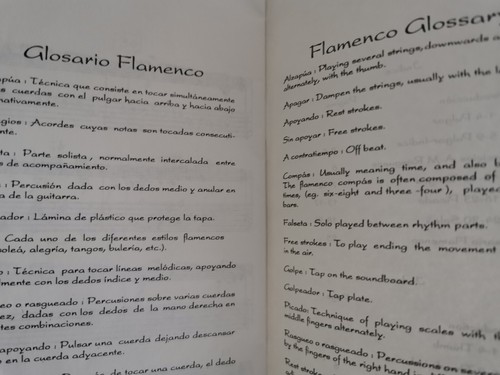 Glosario Flamenco
Técnica que consiste en tocar simultáneamente
cuerdas con el pulgar hacia arriba y hacia abajo
Acordes cuyas notas son tocadas consecuti-
Parte solista, normalmente intercalada entre
de acompañamiento.
: Percusión dada con los dedos medio y anular en
de la guitarra.
: Lámina de plástico que protege la tapa.
Cada uno de los diferentes estilos flamencos
alegría, tangos, bulería, etc.).
: Técnica para tocar líneas melódicas, apoyando
con los dedos índice y medio.
o rasgueado : Percusiones sobre varias cuerdas
dadas con los dedos de la mano derecha en
combinaciones.
apoyando : Pulsar una cuerda dejando descansar
en la cuerda adyacente.
de tocar una cuerda, el dedo
Flamenco Glossar
Alzapúa : Playing several strings, downwards a
alternately, with the thumb.
Apagar : Dampen the strings, usually with the l
Apoyando : Rest strokes.
Sin apoyar : Free strokes.
A contratiempo : Off beat.
Compás : Usually meaning time, and also b
The flamenco compás is often composed of
times, (eg. six-eight and three-four), playe
bars.
Falseta : Solo played between rhythm parts.
Free strokes : To play ending the movement
in the air.
Golpe : Tap on the soundboard.
Golpeador : Tap plate.
Picado: Technique of playing scales with th
middle fingers alternately.
Rasgueo o rasgueado : Percussions on several
by the fingers of the right hand in
Rest stroke